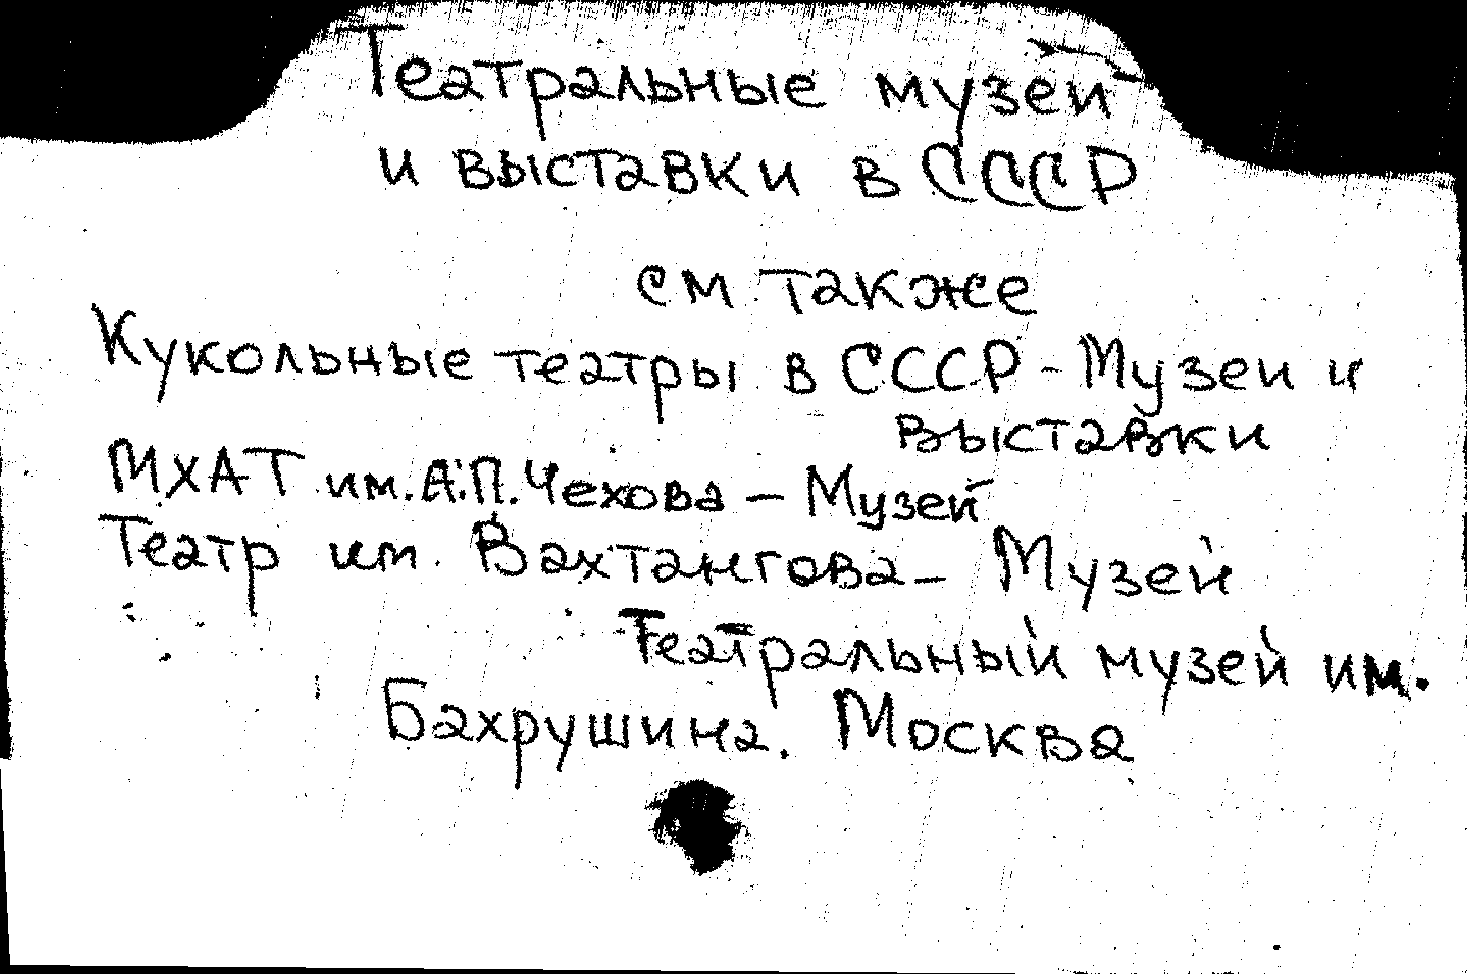 Театральные музеи
и выставки в СССР
см также
Кукольные театры в СССР - Музеи и
выставки
МХАТ им. А.П. Чехова - Музей
Театр им. Вахтангова - Музей
Театральный музей им.
Бахрушина. Москва